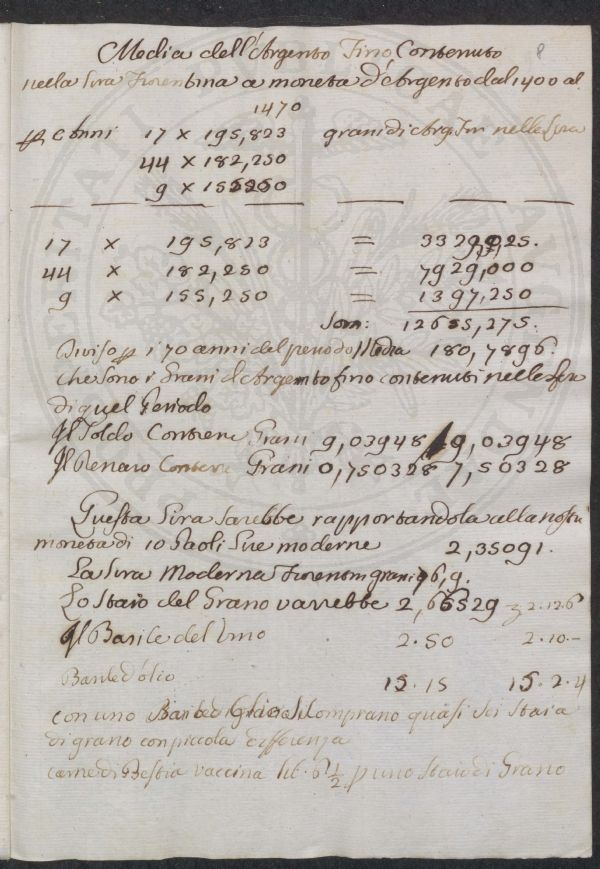 Media dell'Argento Fino, Contenuto 8
nella Lira Fiorentina a moneta d'Argento dal 1400 al
1470
p Anni 17 x 195,823 grani di Arg. Fin nella Lira
44 x 182,250
9 x 155250
17 x 195,823 = 3329,025.
44 x 182,250 = 7929,000
9 x 155,250 = 1397,250
Som: 12655,275.
Diviso p i 70 anni del periodo Media 180,7896.
che sono i Grani d'Argento fino contenuti nelle Lire
di quel Periodo
Il Soldo Contiene Grani 9,03948 9,03948
Il Denaro Contiene Grani 0,750328 7,50328
Questa Lira sarebbe rapportandola alla nostra
moneta di 10 Paoli Lire moderne 2,35091.
La Lira Moderna Fiorentin grani 76,9.
Lo Staio del Grano varrebbe 2,66529 2.12.6
Il Barile del Vino 2.50 2.10.-
Barile d'olio 15.15 15.2.4
con uno Barile d'olio si Comprano quasi sei staia
di grano con piccola differenza
carne di Bestia vaccina lib. 6 1/2 p uno staio di Grano